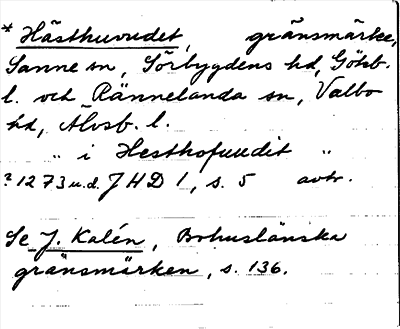 * Hästhuvudet, gränsmärke,
Sanne sn, Sörbygdens hd, Göteb.
l. och Rännelanda sn, Valbo
hd, Älvsb. l.
" i Hesthofuudit "
? 1273 u.d. JHD 1, s. 5 avtr.
Se J. Kalén, Bohuslänska
gränsmärken, s. 136.